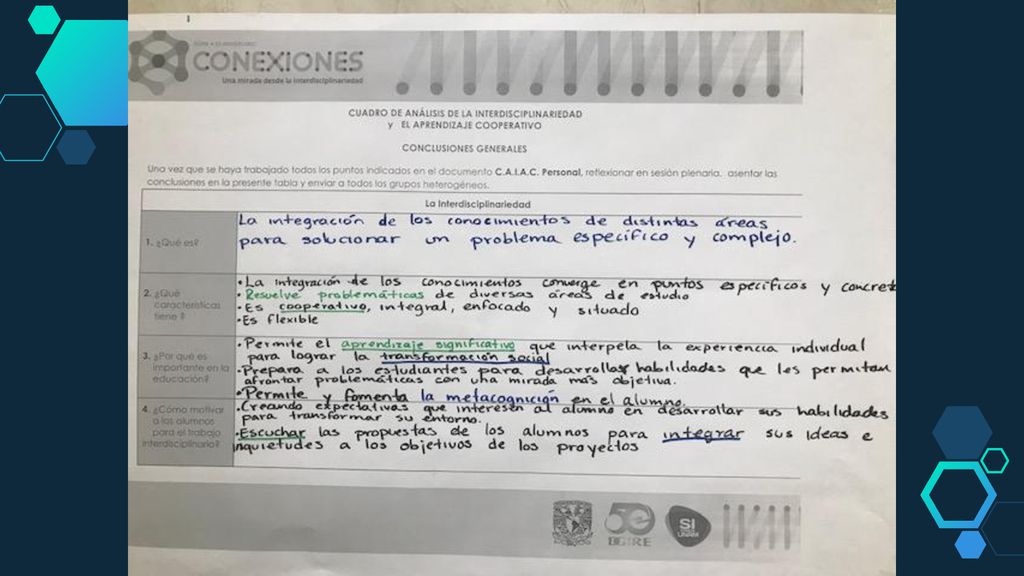 CONEXIONES
Una mirada desde la interdisciplinariedad
CUADRO DE ANÁLISIS DE LA INTERDISCIPLINARIEDAD
y EL APRENDIZAJE COOPERATIVO
CONCLUSIONES GENERALES
Una vez que se haya trabajado todos los puntos indicados en el documento C.A.I.A.C. Personal, reflexionar en sesión plenaria, asentar las
conclusiones en la presente tabla y enviar a todos los grupos heterogéneos.
La Interdisciplinariedad
1. ¿Qué es?
La integración de los conocimientos de distintas áreas
para solucionar un problema específico y complejo.
2. ¿Qué
características
tiene ?
•La integración de los conocimientos converge en puntos específicos y concret
•Resuelve problemáticas de diversas áreas de estudio
•Es cooperativo, integral, enfocado y situado
•Es flexible
3. ¿Por qué es
importante en la
educación?
•Permite el aprendizaje significativo que interpela la experiencia individual
para lograr la transformación social
•Prepara a los estudiantes para desarrollar habilidades que les permitan
afrontar problemáticas con una mirada más objetiva.
•Permite y fomenta la metacognición en el alumno.
4. ¿Cómo motivar
a los alumnos
para el trabajo
interdisciplinario?
•Creando expectativas que interesen al alumno en desarrollar sus habilidades
para transformar su entorno.
•Escuchar las propuestas de los alumnos para integrar sus ideas e
inquietudes a los objetivos de los proyectos
50
DGIRE
SI
UNAM